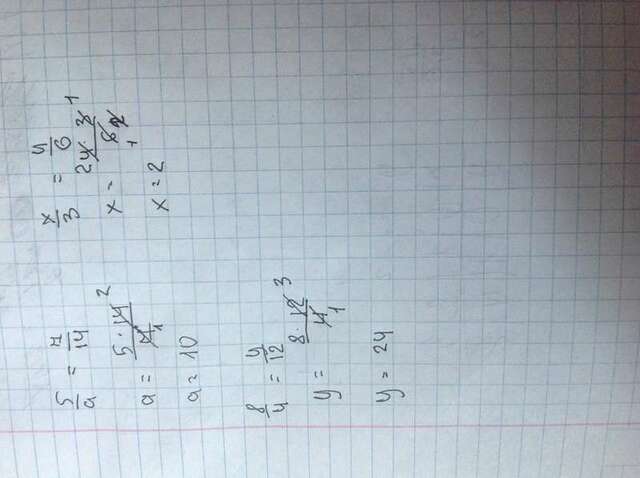 5/a = 7/14
a = 5 · 14 2 / 7 1
a = 10
x/3 = 4/6
x = 2 4 · 3 1 / 1 6 2
x = 2
8/4 = y/12
y = 8 · 12 3 / 4 1
y = 24